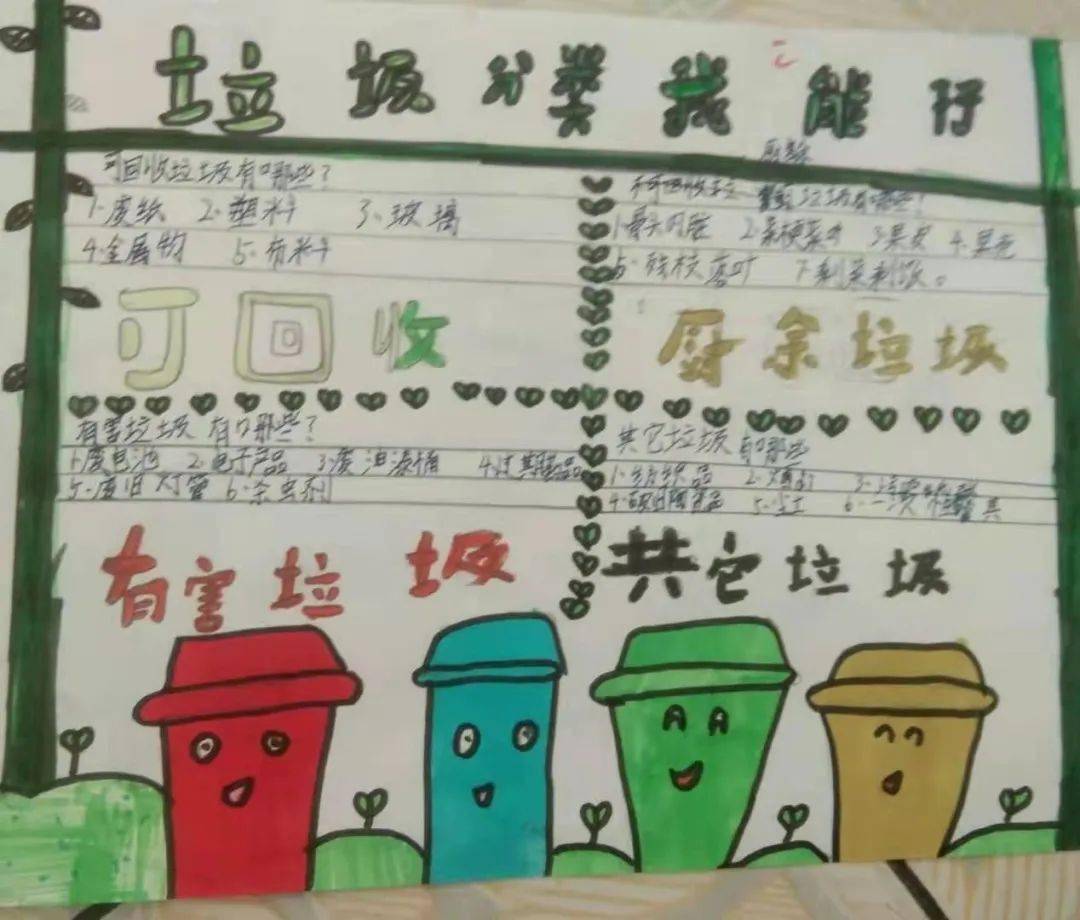 垃圾分类我能行
可回收垃圾有哪些?
1·废纸 2·塑料 3·玻璃
4·金属物 5·布料
可回收
厨余
垃圾有哪些?
1·骨头内脏 2·菜梗菜叶 3·果皮 4·果壳
6·残枝落叶 7·剩菜剩饭。
厨余垃圾
有害垃圾 有哪些?
1·废电池 2·电子产品 3·废油漆桶 4·过期药品
5·废旧灯管 6·杀虫剂
有害垃圾
其它垃圾 有哪些
1·纺织品 2· 3·
4· 5·尘土 6·一次性餐具
其它垃圾